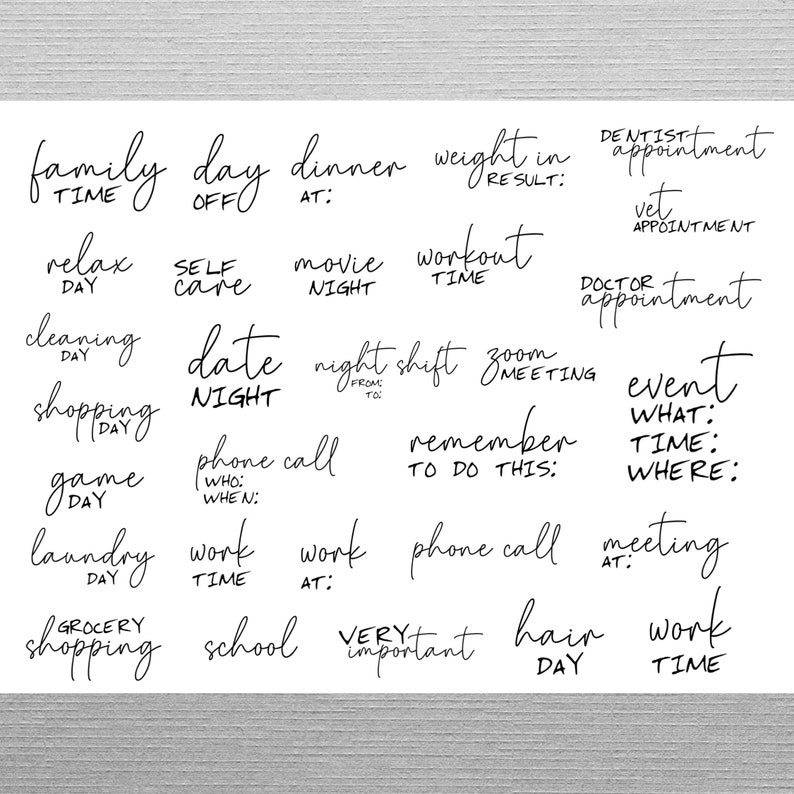 family
TIME
day
OFF
dinner
AT:
weight in
RESULT:
DENTIST
appointment
vet
APPOINTMENT
relax
DAY
SELF
care
movie
NIGHT
workout
TIME
DOCTOR
appointment
cleaning
DAY
date
NIGHT
night shift
FROM:
TO:
zoom
MEETING
event
WHAT:
TIME:
WHERE:
shopping
DAY
phone call
WHO:
WHEN:
remember
TO DO THIS:
game
DAY
laundry
DAY
work
TIME
work
AT:
phone call
meeting
AT:
GROCERY
shopping
school
VERY
important
hair
DAY
work
TIME